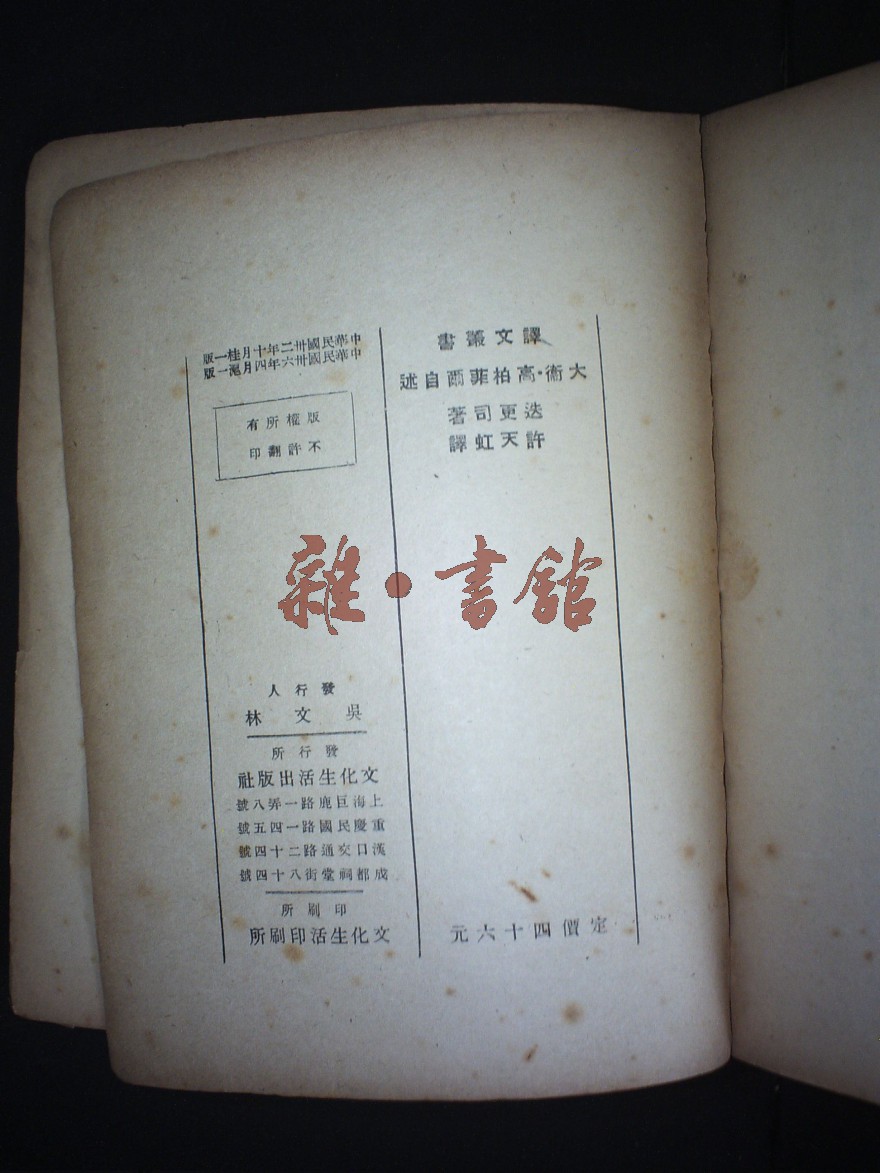 譯文叢書
大衛·高柏菲爾自述
迭更司著
許天虹譯
定價四十六元
中華民國卅二年十月桂一版
中華民國卅六年四月滬一版
版權所有
不許翻印
發行人
吳文林
發行所
文化生活出版社
上海巨鹿路一弄八號
重慶民國路一四五號
漢口交通路二十四號
成都祠堂街八十四號
印刷所
文化生活印刷所
雜·書館